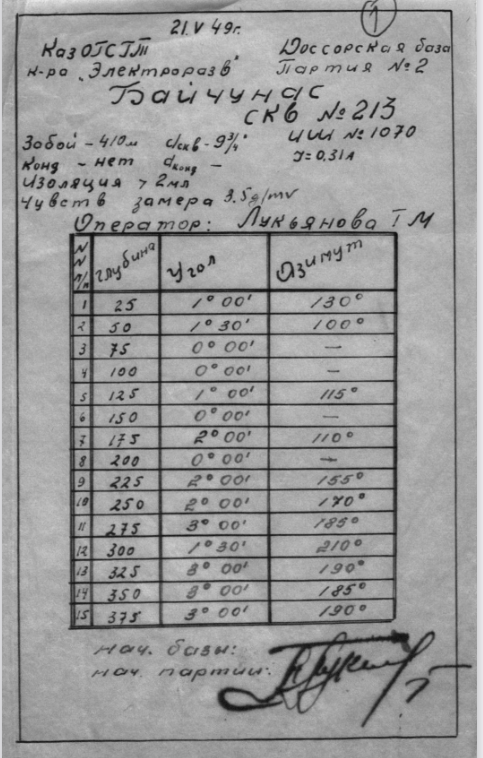 1
21.V 49г.
КазОГСГТ Доссорская база
к-ра "Электроразв" Партия №2
Байчунас
скв №213
Забой - 410м dскв - 9 3/4" ИШ № 1070
Конд - нет dконд - J=0,31А
Изоляция > 2мл
Чувств замера 3.5g/mv
Оператор: Лукьянова ГМ
NN п/п глубина Угол Азимут
1 25 1° 00' 130°
2 50 1° 30' 100°
3 75 0° 00' —
4 100 0° 00' —
5 125 1° 00' 115°
6 150 0° 00' —
7 175 2° 00' 110°
8 200 0° 00' —
9 225 2° 00' 155°
10 250 2° 00' 170°
11 275 3° 00' 185°
12 300 1° 30' 210°
13 325 3° 00' 190°
14 350 3° 00' 185°
15 375 3° 00' 190°
нач. базы:
нач. партии: